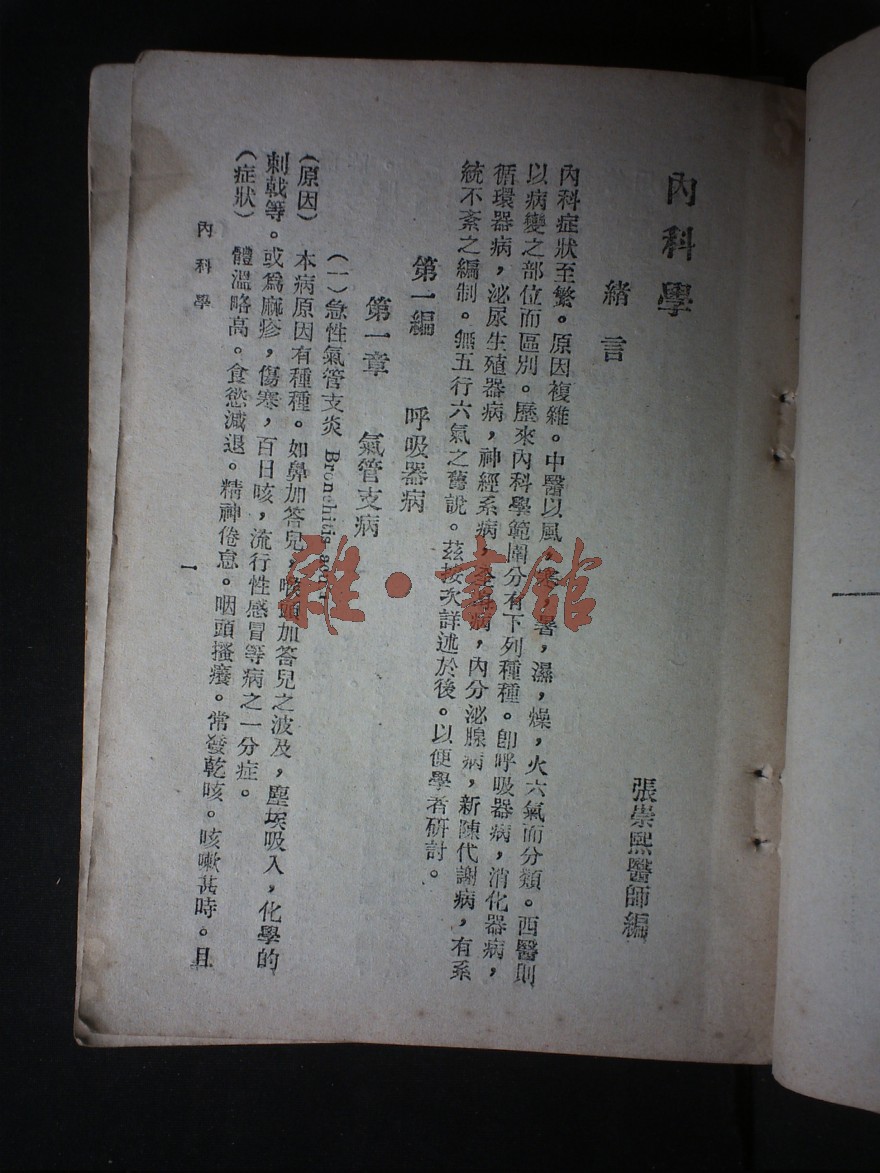 內科學
張崇熙醫師編
緒言
內科症狀至繁。原因複雜。中醫以風,寒,暑,濕,燥,火六氣而分類。西醫則
以病變之部位而區別。歷來內科學範圍分有下列種種。卽呼吸器病,消化器病,
循環器病,泌尿生殖器病,神經系病,病,內分泌腺病,新陳代謝病,有系
統不紊之編制。無五行六氣之舊說。茲按次詳述於後。以便學者研討。
第一編 呼吸器病
第一章 氣管支病
(一)急性氣管支炎 Bronchitis
(原因) 本病原因有種種。如鼻加答兒,喉頭加答兒之波及,塵埃吸入,化學的
刺戟等。或爲麻疹,傷寒,百日咳,流行性感冒等病之一分症。
(症狀) 體溫略高。食慾減退。精神倦怠。咽頭搔癢。常發乾咳。咳嗽甚時。且
內科學
一
雅·書館